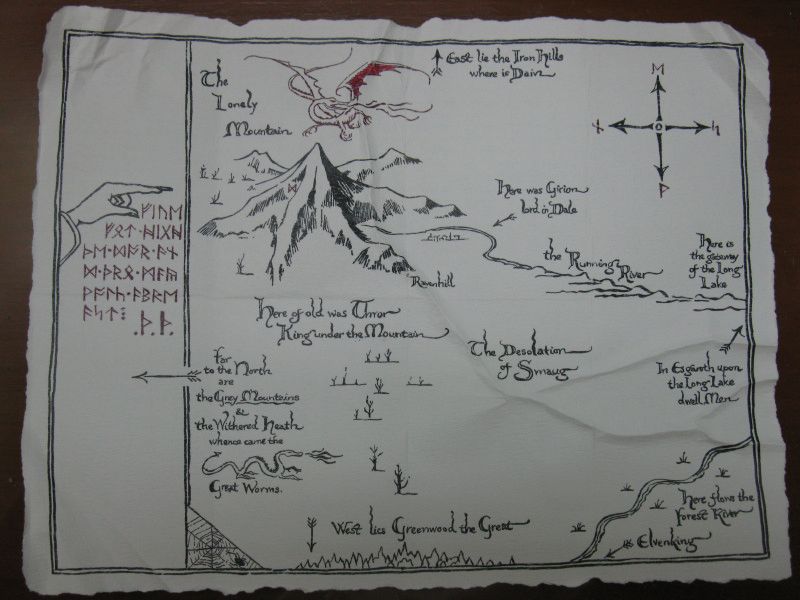 The
Lonely
Mountain
East lie the Iron Hills
where is Dain
ᛖ
ᚾ
ᛋ
ᚹ
ᛞ
ᚠᛁᚢᛖ
ᚠᛟᛏ·ᚻᛁᚷᚻ
ᚦᛖ·ᛞᚩᚱ·ᚪᚾ
ᛞ·ᚦᚱᛟ·ᛗᚪᚣ
ᚹᚪᛚᚳ·ᚪᛒᚱᛖ
ᚪᛋᛏ⋮
.ᚦ.ᚦ.
Here was Girion
lord in Dale
the Running
River
Here is
the gateway
of the Long
Lake
Ravenhill
Here of old was Thror
King under the Mountain
The Desolation
of Smaug
Far
to the North
are
the Grey Mountains
&
the Withered Heath
whence came the
Great Worms.
In Esgaroth upon
the Long Lake
dwell Men
Here flows the
Forest River
Elvenking
West lies Greenwood the Great